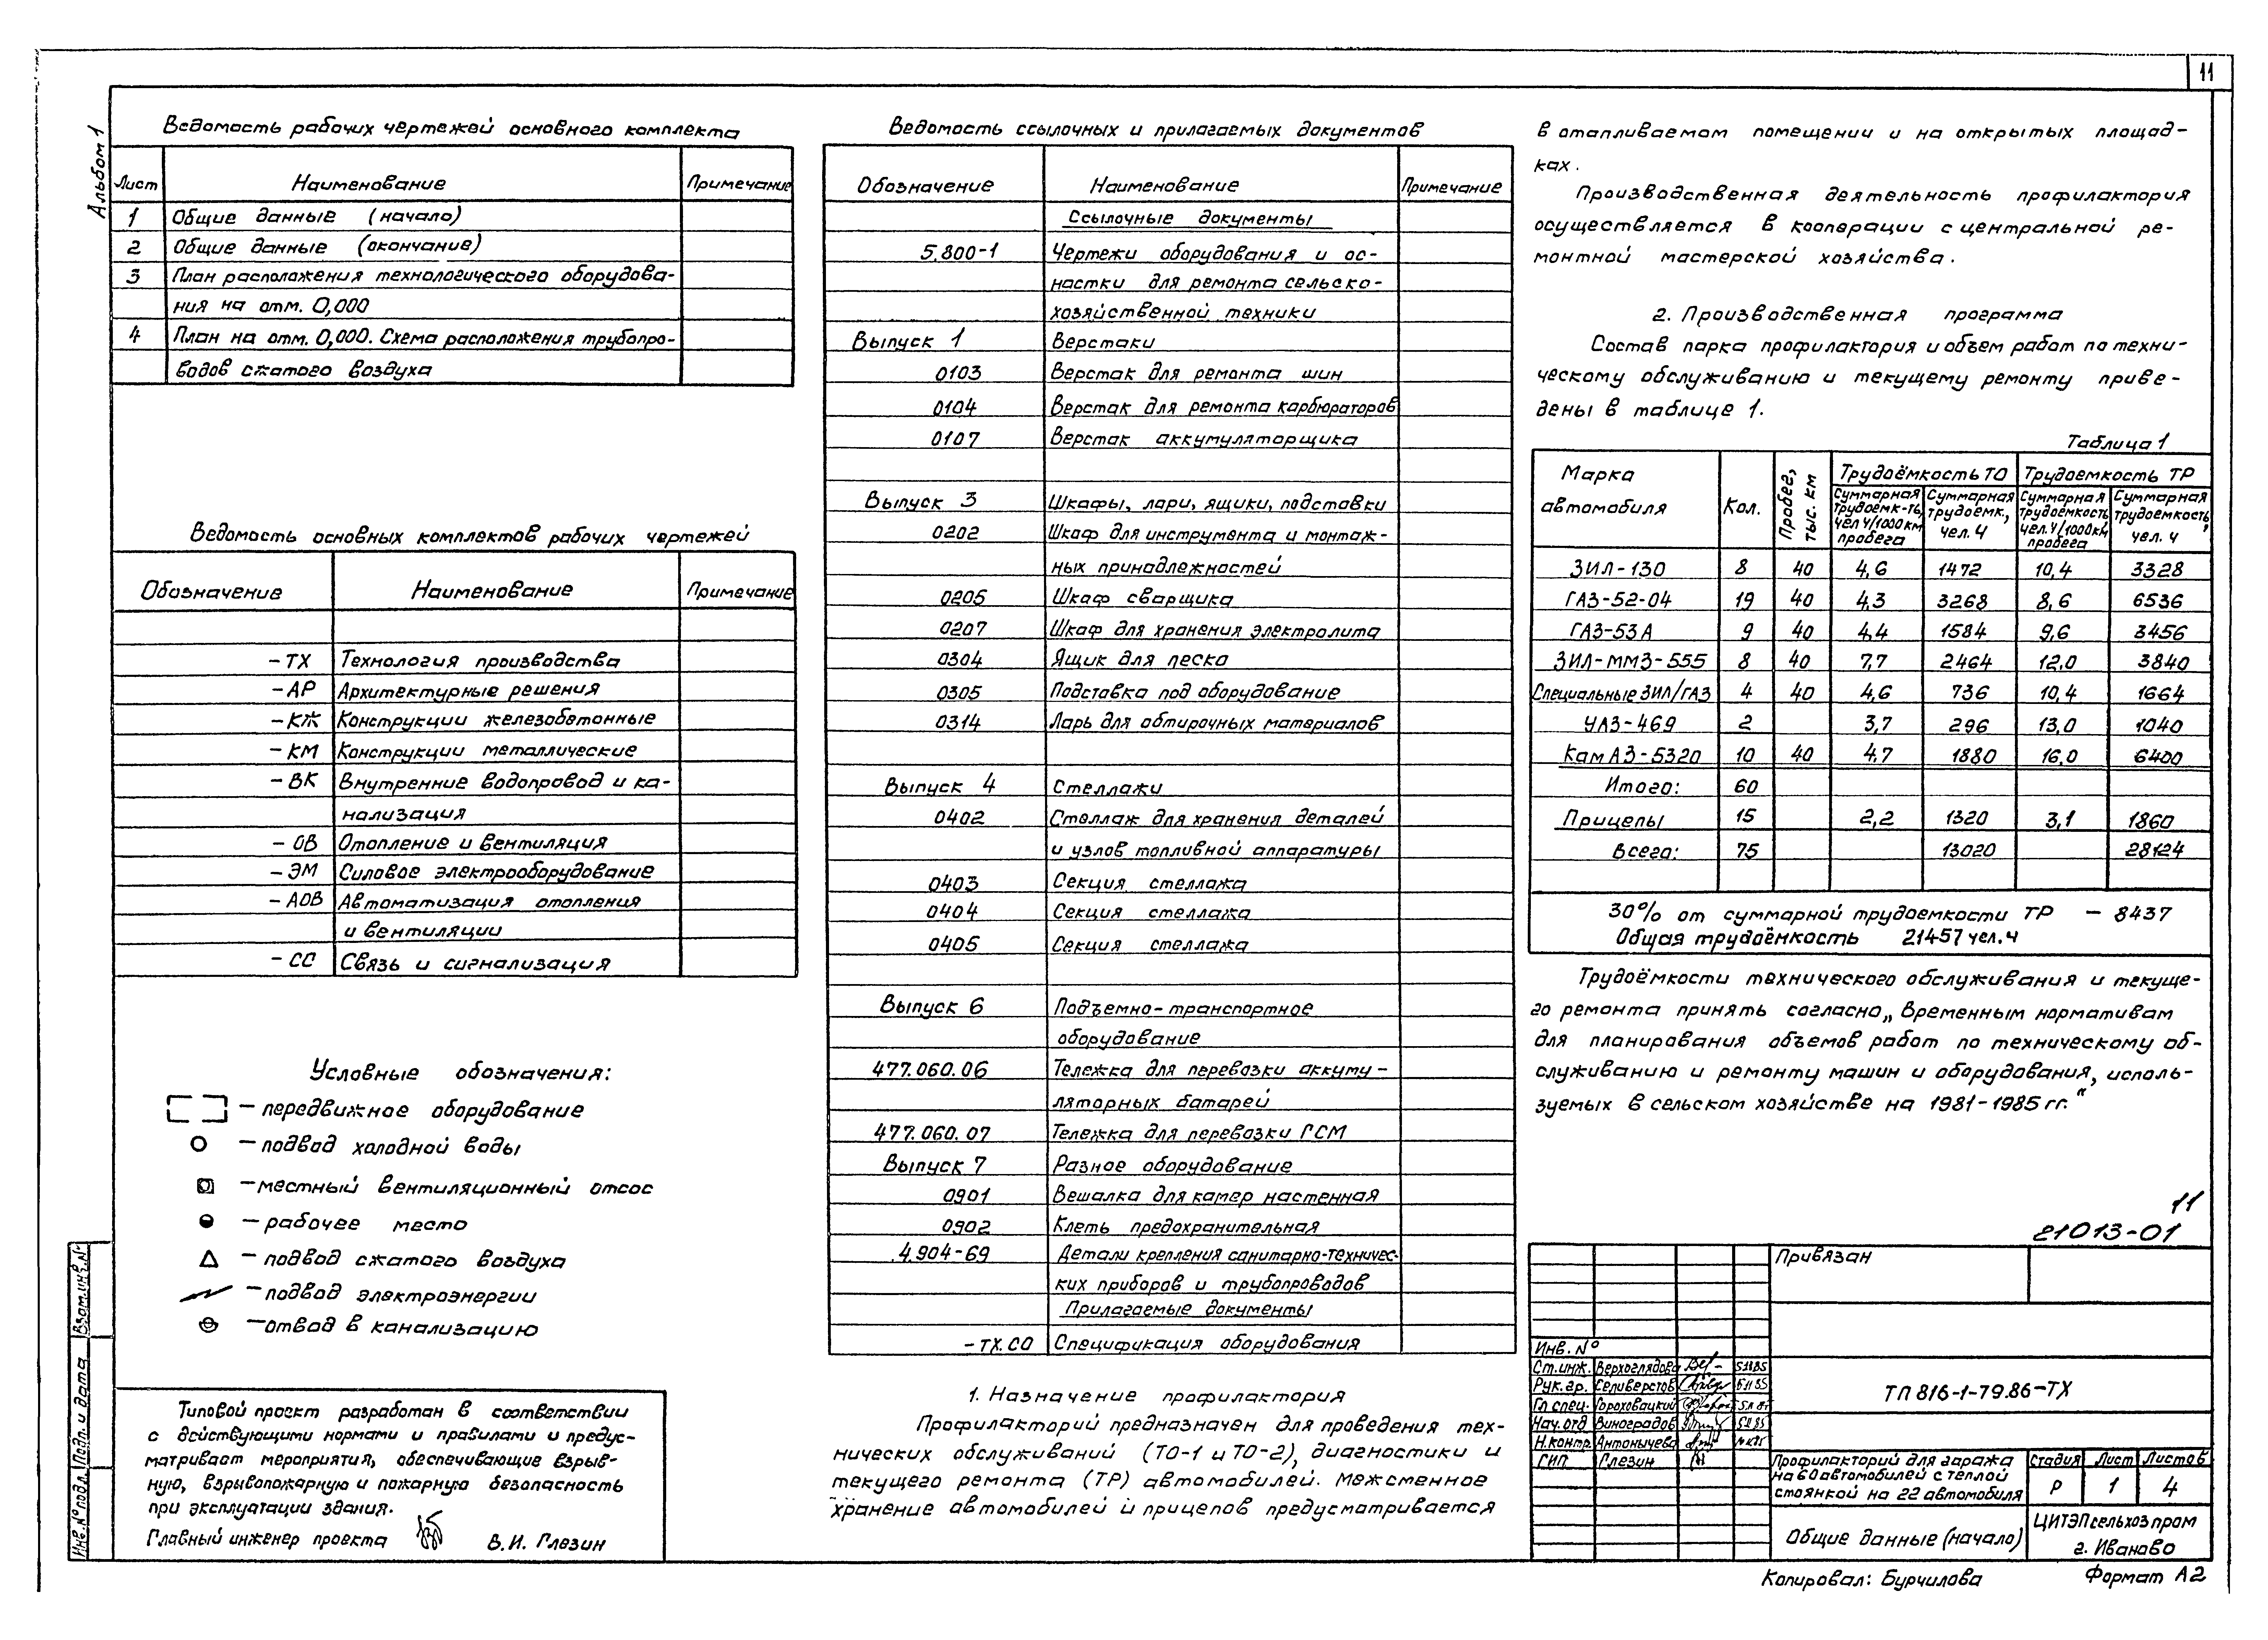 11
Альбом 1
Ведомость рабочих чертежей основного комплекта
Лист Наименование Примечание
1 Общие данные (начало)
2 Общие данные (окончание)
3 План расположения технологического оборудова-
ния на отм. 0,000
4 План на отм. 0,000. Схема расположения трубопро-
водов сжатого воздуха
Ведомость основных комплектов рабочих чертежей
Обозначение Наименование Примечание
-ТХ Технология производства
-АР Архитектурные решения
-КЖ Конструкции железобетонные
-КМ Конструкции металлические
-ВК Внутренние водопровод и ка-
нализация
-ОВ Отопление и вентиляция
-ЭМ Силовое электрооборудование
-АОВ Автоматизация отопления
и вентиляции
-СС Связь и сигнализация
Условные обозначения:
- передвижное оборудование
- подвод холодной воды
- местный вентиляционный отсос
- рабочее место
- подвод сжатого воздуха
- подвод электроэнергии
- отвод в канализацию
Типовой проект разработан в соответствии
с действующими нормами и правилами и предус-
матривает мероприятия, обеспечивающие взрыв-
ную, взрывопожарную и пожарную безопасность
при эксплуатации здания.
Главный инженер проекта В.И. Глезин
Инв. № подл. Подп. и дата Взам. инв. №
Ведомость ссылочных и прилагаемых документов
Обозначение Наименование Примечание
Ссылочные документы
5.800-1 Чертежи оборудования и ос-
настки для ремонта сельско-
хозяйственной техники
Выпуск 1 Верстаки
0103 Верстак для ремонта шин
0104 Верстак для ремонта карбюраторов
0107 Верстак аккумуляторщика
Выпуск 3 Шкафы, лари, ящики, подставки
0202 Шкаф для инструмента и монтаж-
ных принадлежностей
0205 Шкаф сварщика
0207 Шкаф для хранения электролита
0304 Ящик для песка
0305 Подставка под оборудование
0314 Ларь для обтирочных материалов
Выпуск 4 Стеллажи
0402 Стеллаж для хранения деталей
и узлов топливной аппаратуры
0403 Секция стеллажа
0404 Секция стеллажа
0405 Секция стеллажа
Выпуск 6 Подъемно-транспортное
оборудование
477.060.06 Тележка для перевозки аккуму-
ляторных батарей
477.060.07 Тележка для перевозки ГСМ
Выпуск 7 Разное оборудование
0901 Вешалка для камер настенная
0902 Клеть предохранительная
4.904-69 Детали крепления санитарно-техничес-
ких приборов и трубопроводов
Прилагаемые документы
-ТХ.СО Спецификация оборудования
1. Назначение профилактория
Профилакторий предназначен для проведения тех-
нических обслуживаний (ТО-1 и ТО-2), диагностики и
текущего ремонта (ТР) автомобилей. Межсменное
хранение автомобилей и прицепов предусматривается
в отапливаемом помещении и на открытых площад-
ках.
Производственная деятельность профилактория
осуществляется в кооперации с центральной ре-
монтной мастерской хозяйства.
2. Производственная программа
Состав парка профилактория и объем работ по техни-
ческому обслуживанию и текущему ремонту приве-
дены в таблице 1.
Таблица 1
Марка автомобиля Кол. Пробег, тыс. км Трудоёмкость ТО Трудоемкость ТР
Суммарная трудоемк-ть, чел ч/1000 км пробега Суммарная трудоемк., чел. ч Суммарная трудоемкость чел. ч/1000 км пробега Суммарная трудоемкость, чел. ч
ЗИЛ-130 8 40 4,6 1472 10,4 3328
ГАЗ-52-04 19 40 4,3 3268 8,6 6536
ГАЗ-53А 9 40 4,4 1584 9,6 3456
ЗИЛ-ММЗ-555 8 40 7,7 2464 12,0 3840
Специальные ЗИЛ/ГАЗ 4 40 4,6 736 10,4 1664
УАЗ-469 2 3,7 296 13,0 1040
КамАЗ-5320 10 40 4,7 1880 16,0 6400
Итого: 60
Прицепы 15 2,2 1320 3,1 1860
Всего: 75 13020 28124
30% от суммарной трудоемкости ТР - 8437
Общая трудоёмкость 21457 чел. ч
Трудоёмкости технического обслуживания и текуще-
го ремонта принять согласно „Временным нормативам
для планирования объемов работ по техническому об-
служиванию и ремонту машин и оборудования, исполь-
зуемых в сельском хозяйстве на 1981-1985 гг.“
11
21013-01
Привязан
Инв. №
Ст. инж. Верхоглядова 5.11.85
Рук. гр. Селиверстов 5.11.85
Гл. спец. Гороховацкий
Нач. отд Виноградов
Н. контр. Антонычева
ГИП Глезин
ТП 816-1-79.86-ТХ
Профилакторий для гаража
на 60 автомобилей с теплой
стоянкой на 22 автомобиля
Стадия Лист Листов
Р 1 4
Общие данные (начало)
ЦИТЭПсельхозпром
г. Иваново
Копировал: Бурчилова Формат А2